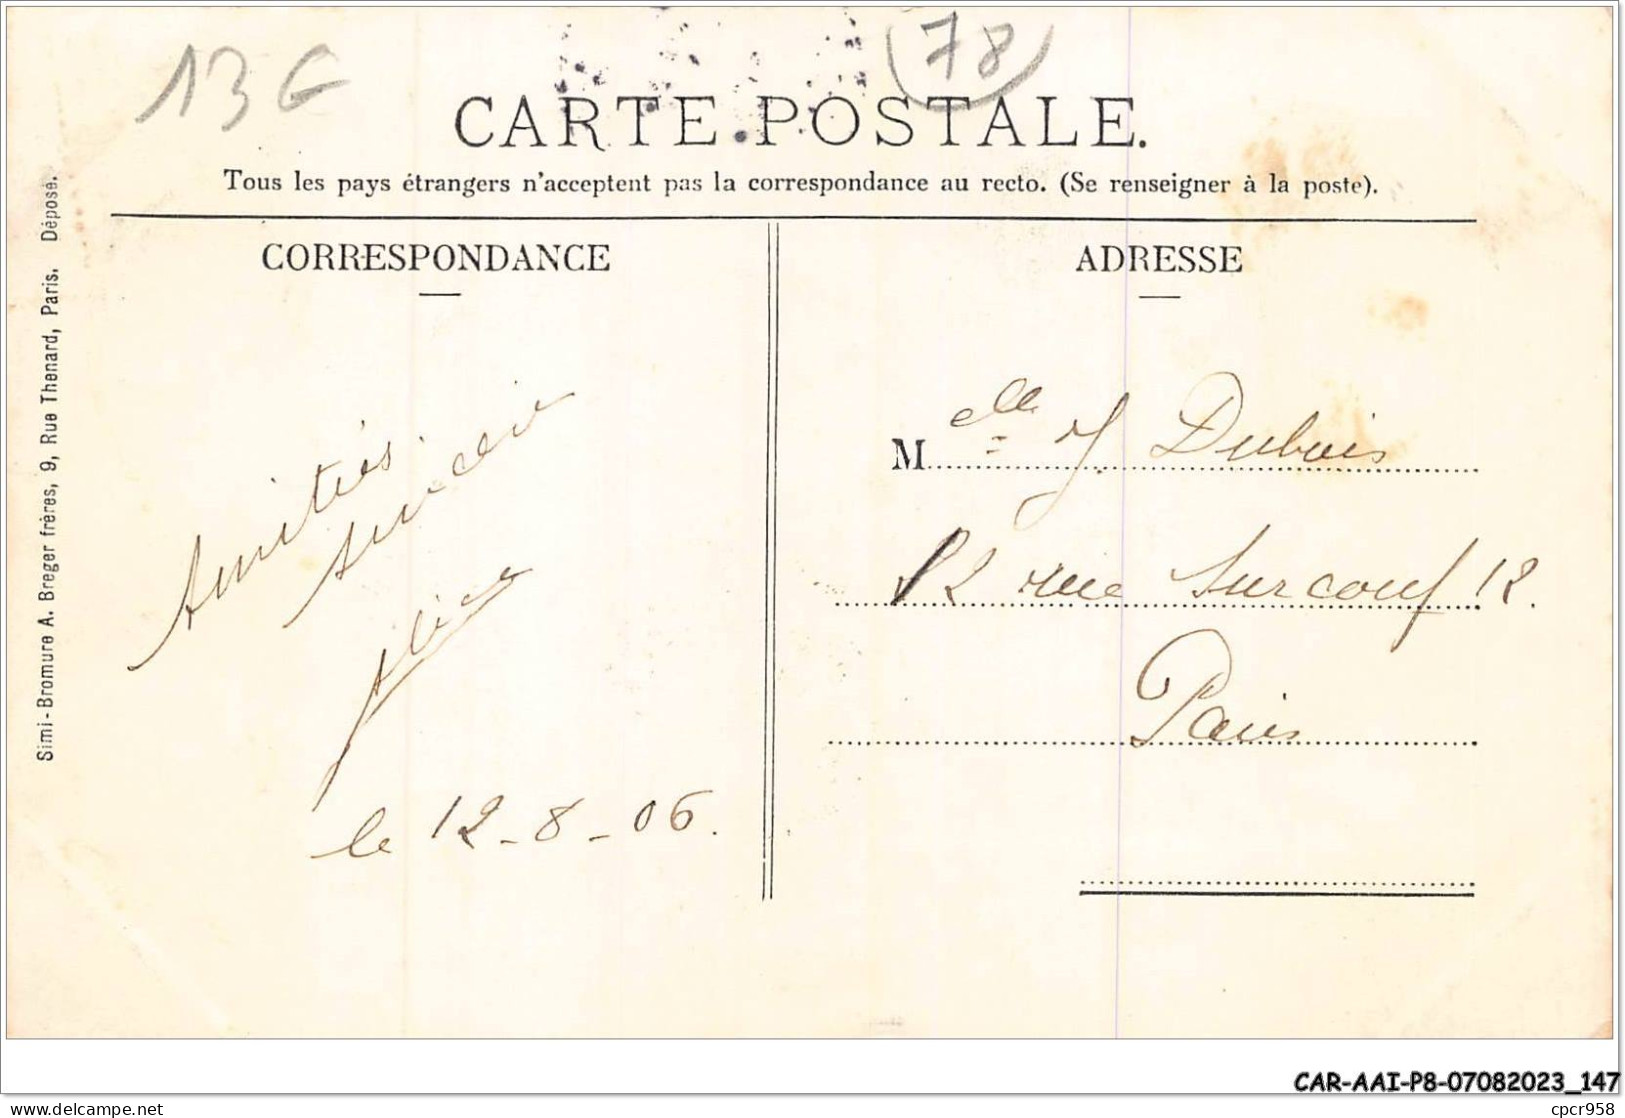 13 G
(78)
CARTE POSTALE.
Tous les pays étrangers n'acceptent pas la correspondance au recto. (Se renseigner à la poste).
CORRESPONDANCE
Amitiés
sincères
Alice
le 12-8-06.
ADRESSE
Melle J. Dubois
12 rue Surcouf 12.
Paris
Simi-Bromure A. Breger frères, 9, Rue Thenard, Paris. Déposé.
CAR-AAI-P8-07082023_147
delcampe.net
cpcr958